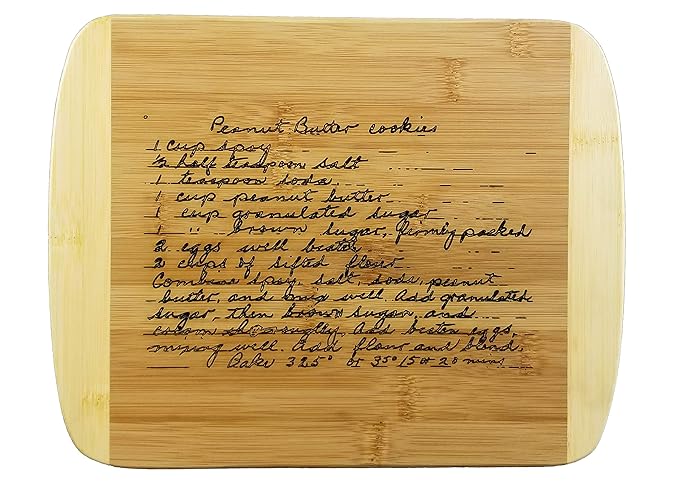 Peanut Butter cookies
1 cup spry
½ half teaspoon salt
1 teaspoon soda
1 cup peanut butter
1 cup granulated sugar
1 " brown sugar, firmly packed
2 eggs well beaten
2 cups of sifted flour
Combine spry, salt, soda, peanut
butter, and mix well. Add granulated
sugar, then brown sugar, and
cream thoroughly. Add beaten eggs,
mixing well. Add flour and blend.
Bake 325° or 350 15 or 20 mins